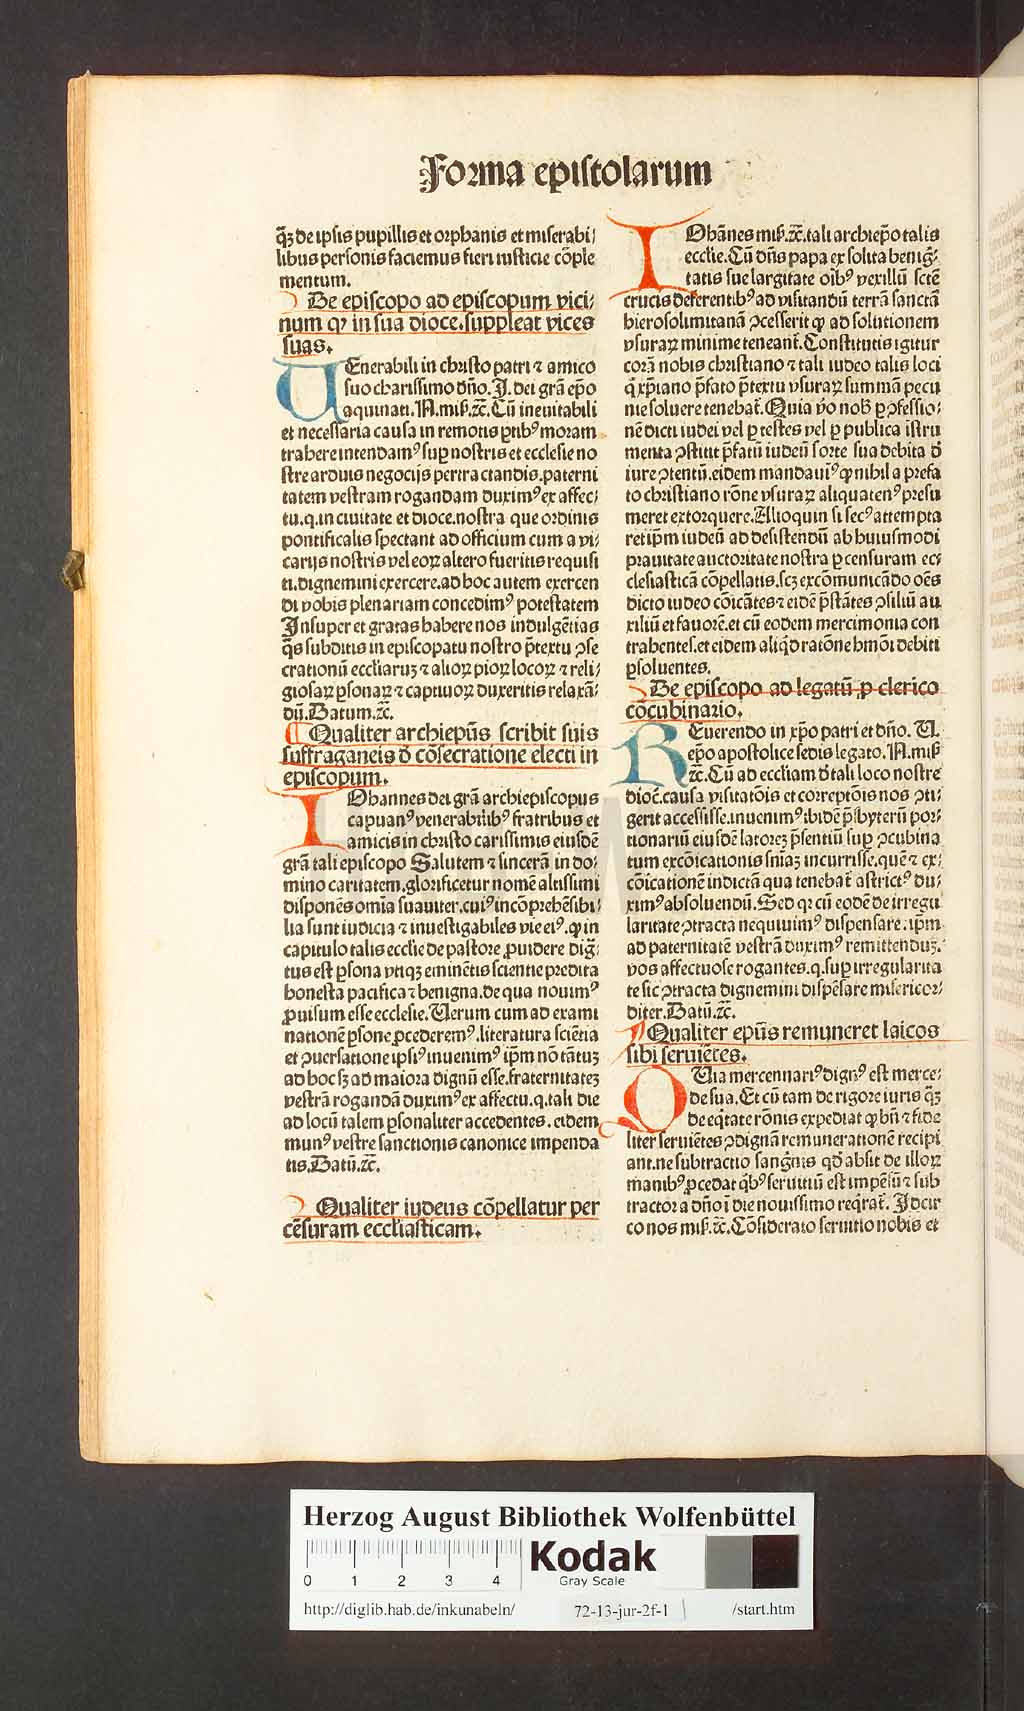 Forma epistolarum
q̃ꝫ de ipsis pupillis et orphanis et miserabi/
libus personis faciemus fieri iusticie cõple
mentum.
De episcopo ad episcopum vici/
num qꝫ in sua dioce. suppleat vices
suas.
UEnerabili in christo patri ⁊ amico
suo charissimo dño. J. dei grã ep̃o
aquinati. N. miß. ⁊c̃. Cũ ineuitabili
et necessaria causa in remotis ꝑtibꝰ moram
trahere intendamꝰ suꝑ nostris et ecclesie no
stre arduis negocijs pertractandis. paterni
tatem vestram rogandam duximꝰ ex affec/
tu. q. in ciuitate et dioce. nostra que ordinis
pontificalis spectant ad officium cum a vi/
carijs nostris vel eoꝝ altero fueritis requisi
ti. dignemini exercere. ad hoc autem exercen
di vobis plenariam concedimꝰ potestatem
Jnsuper et gratas habere nos indulgẽtias
q̃s subditis in episcopatu nostro p̃textu ꝯse
crationũ eccliaruꝫ ⁊ alioꝝ pioꝝ locoꝝ ⁊ reli/
giosaꝝ ꝑsonaꝝ ⁊ captiuoꝝ duxeritis relaxã/
dũ. Datum. ⁊c̃.
Qualiter archiep̃us scribit suis
suffraganeis d̃ cõsecratione electi in
episcopum.
IOhannes dei grã archiepiscopus
capuanꝰ venerabilibꝰ fratribus et
amicis in christo carissimis eiusdẽ
grã tali episcopo Salutem ⁊ sincerã in do/
mino caritatem. glorificetur nomẽ altissimi
disponẽs omĩa suauiter. cuiꝰ incõprehẽsibi/
lia sunt iudicia ⁊ inuestigabiles vie eiꝰ. ꝙ in
capitulo talis ecclie de pastore ꝓuidere dig̃/
tus est ꝑsona vtiqꝫ eminẽtis scientie predita
honesta pacifica ⁊ benigna. de qua nouimꝰ
ꝓuisum esse ecclesie. Uerum cum ad exami
nationẽ ꝑsone ꝓcederemꝰ. literatura sciẽtia
et ꝯuersatione ipsiꝰ inuenimꝰ ip̃m nõ tãtuꝫ
ad hoc sꝫ ad maiora dignũ esse. fraternitateꝫ
vestrã rogandã duximꝰ ex affectu. q. tali die
ad locũ talem ꝑsonaliter accedentes. eidem
munꝰ vestre sanctionis canonice impenda
tis. Datũ. ⁊c̃.
Qualiter iudeus cõpellatur per
cẽsuram eccliasticam.
IOhãnes miß. ⁊c̃. tali archiep̃o talis
ecclie. Cũ dñs papa ex solita benig̃/
tatis sue largitate oĩbꝰ vexillũ sctẽ
crucis deferentibꝰ ad visitandũ terrã sanctã
hierosolimitanã ꝯcesserit ꝙ ad solutionem
vsuraꝝ minime teneant̃. Constitutis igitur
corã nobis christiano ⁊ tali iudeo talis loci
q̃ xp̃iano p̃fato p̃textu vsuraꝝ summã pecu
nie soluere tenebat̃. Quia ṽo nob̃ ꝑ ꝯfessio/
nẽ dicti iudei vel ꝑ testes vel ꝑ publica ĩstru
menta ꝯstitit p̃fatũ iudeũ sorte sua debita d̃
iure ꝯtentũ. eidem mandauiꝰ ꝙ nihil a prefa
to christiano rõne vsuraꝝ aliquatenꝰ presu
meret extorquere. Alioquin si secꝰ attempta
ret ip̃m iudeũ ad desistendũ ab huiusmodi
prauitate auctoritate nostra ꝑ censuram ec/
clesiasticã cõpellatis. scꝫ excõmunicãdo oẽs
dicto iudeo cõicãtes ⁊ eidẽ p̃stãtes ꝯsiliũ au
xiliũ et fauorẽ. et cũ eodem mercimonia con
trahentes. et eidem aliq̃d ratõne hm̃oi debiti
ꝑsoluentes.
De episcopo ad legatũ ꝓ clerico
cõcubinario.
REuerendo in xp̃o patri et dño. U.
ep̃o apostolice sedis legato. N. miß
⁊c̃. Cũ ad eccliam d̃ tali loco nostre
dioc̃. causa visitatõis et correptõis nos ꝯti/
gerit accessisse. inuenimꝰ ibidẽ p̃sbyterũ por/
tionariũ eiusdẽ latoreꝫ p̃sentiũ suꝑ ꝯcubina
tum excõicationis sniaꝫ incurrisse. quẽ ⁊ ex/
cõicationẽ indictã qua tenebat̃ astrictꝰ du/
ximꝰ absoluendũ. Sed qꝛ cũ eodẽ de irregu
laritate ꝯtracta nequiuimꝰ dispensare. ip̃m
ad paternitatẽ vestrã duximꝰ remittenduꝫ.
vos affectuose rogantes. q. suꝑ irregularita
te sic ꝯtracta dignemini dispẽsare misericor/
diter. Datũ. ⁊c̃.
Qualiter ep̃us remuneret laicos
sibi seruiẽtes.
QUia mercennariꝰ dignꝰ est merce/
de sua. Et cũ tam de rigore iuris q̃ꝫ
de eq̃tate rõnis expediat ꝙ bñ ⁊ fide
liter seruiẽtes ꝯdignã remunerationẽ recipi
ant. ne subtractio sang̃nis qd̃ absit de illoꝝ
manibꝰ ꝓcedat qĩbꝰ seruitiũ est impẽsũ ⁊ sub
tractor a dño ĩ die nouissimo req̃rat̃. Jdcir
co nos miß. ⁊c̃. Cõsiderato seruitio nobis et
Herzog August Bibliothek Wolfenbüttel
0 1 2 3 4
Kodak
Gray Scale
http://diglib.hab.de/inkunabeln/ 72-13-jur-2f-1 /start.htm